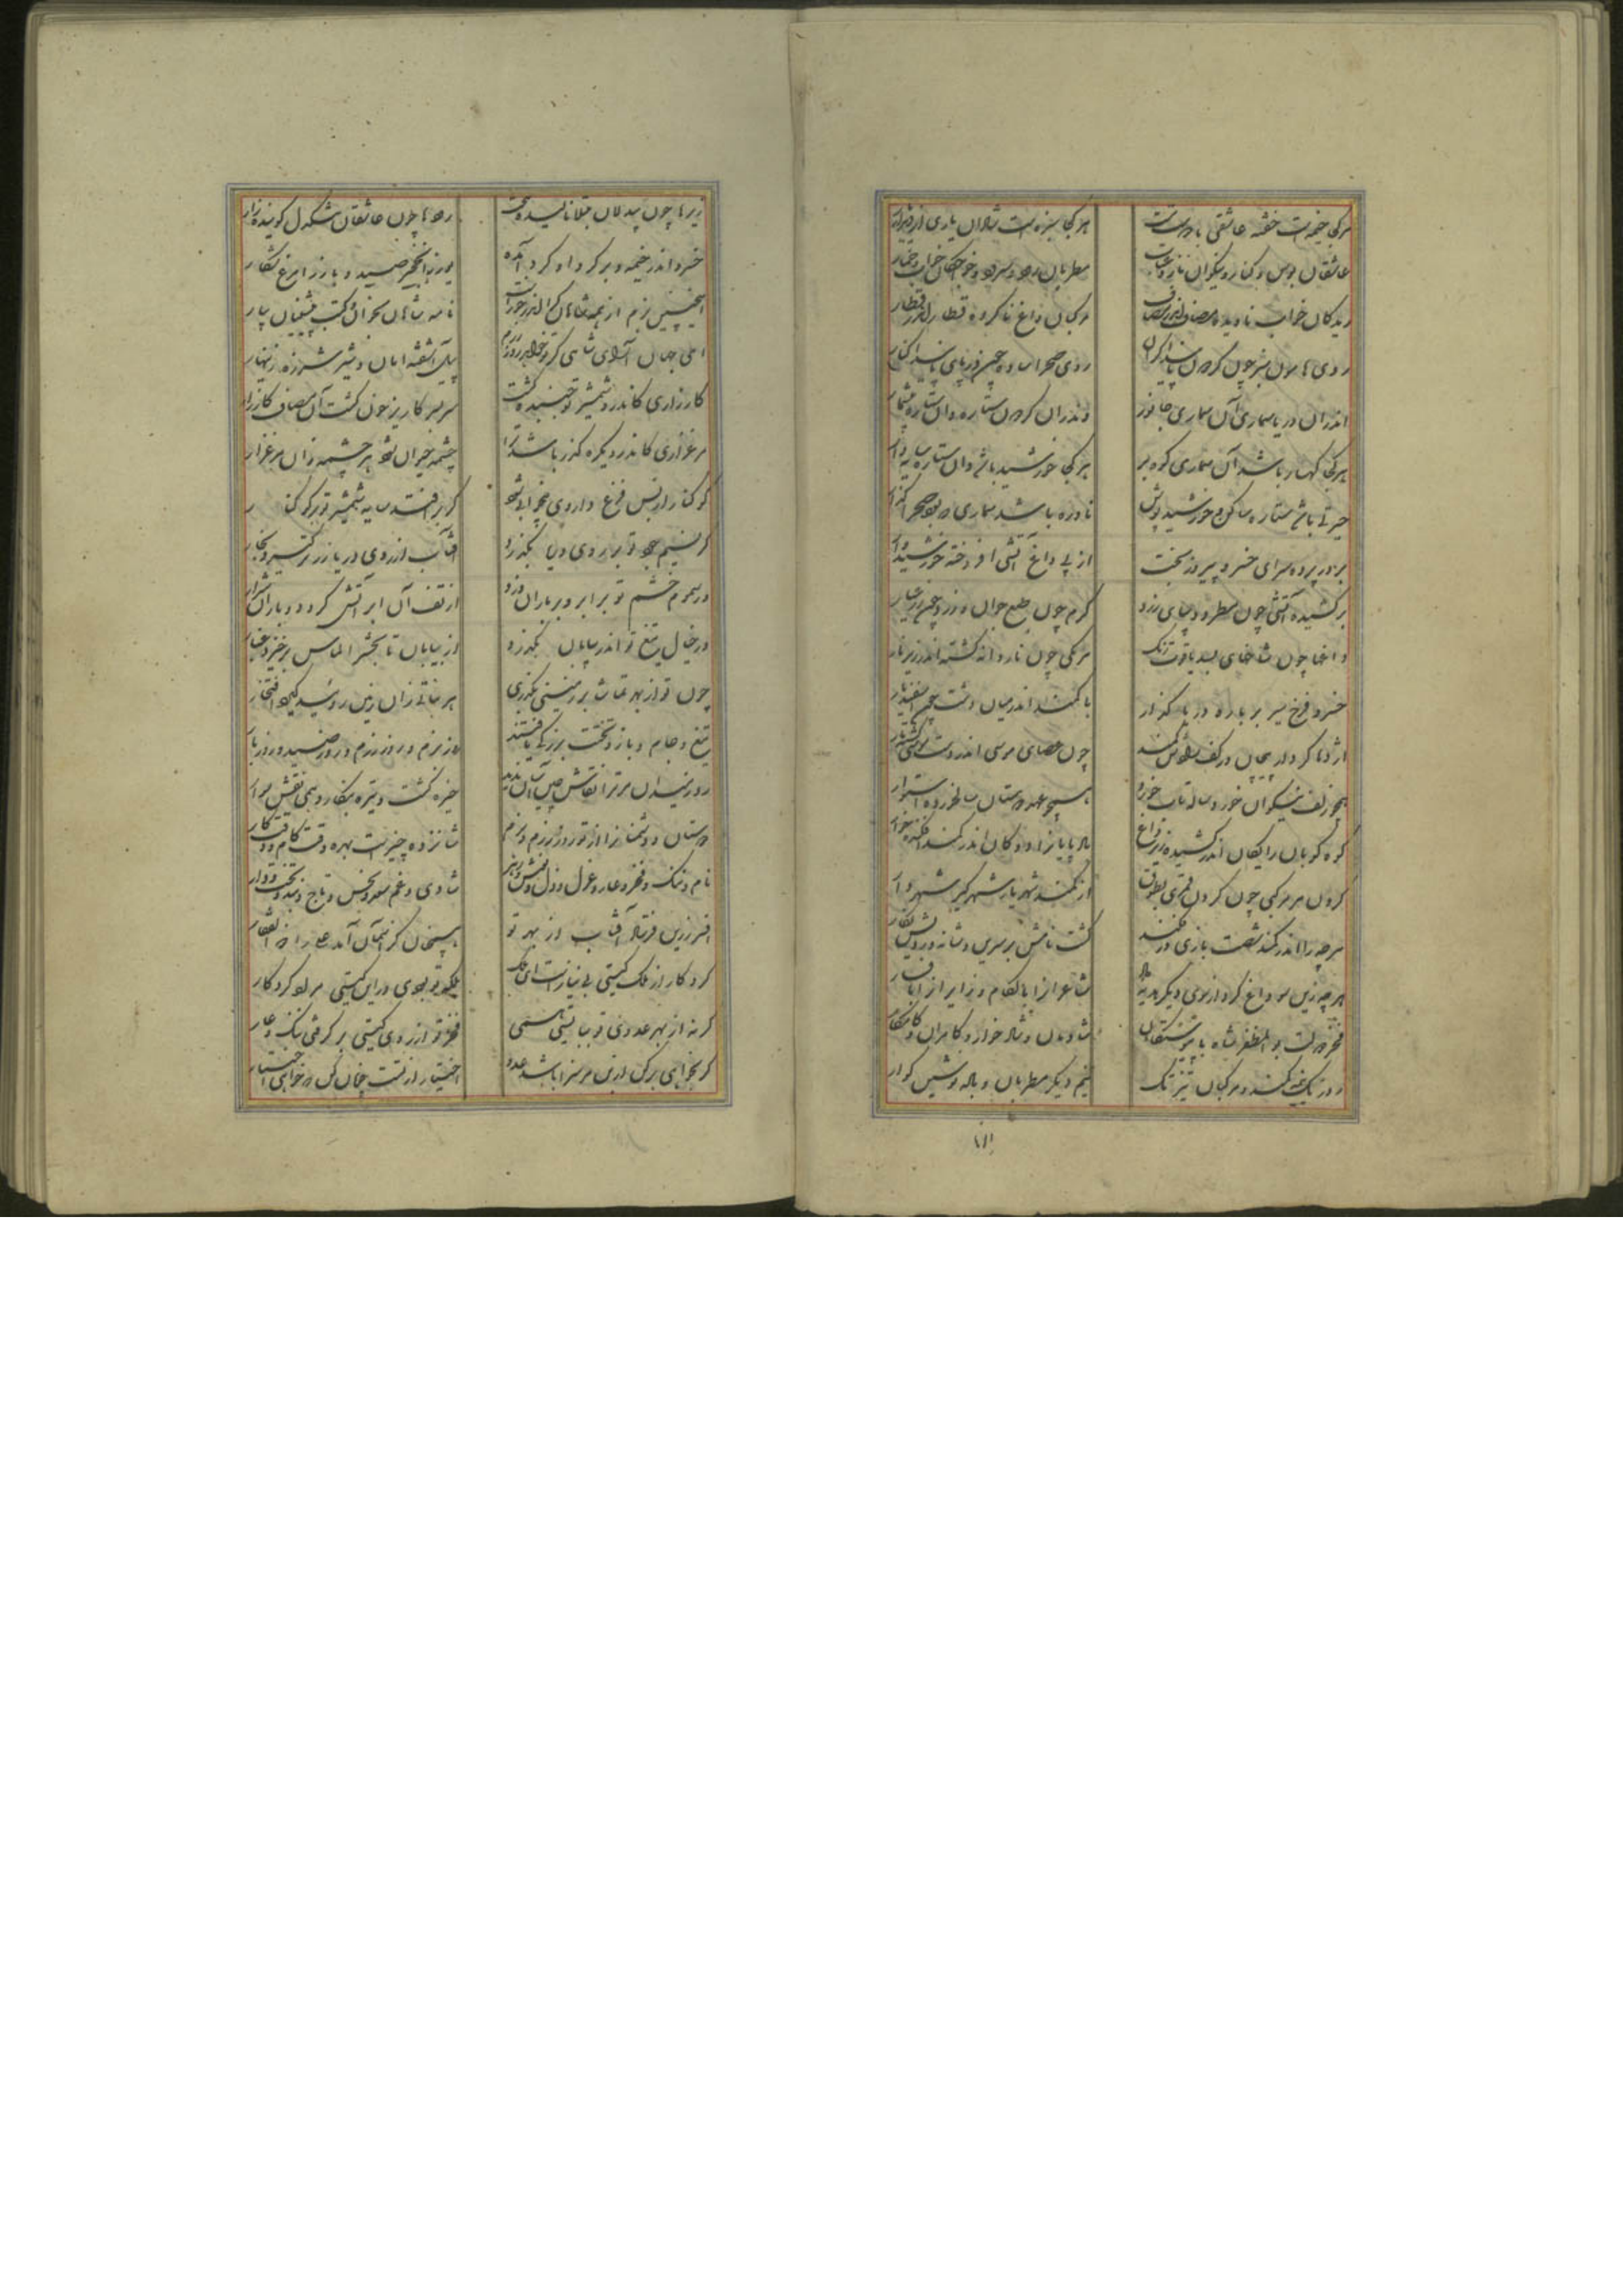 هر کجا خیمه است خفته عاشقی با دوست مست
هر کجا سبزه است شادان یاری از دیدار یار
عاشقان بوس و کنار و نیکوان ناز و عتاب
مطربان رود و سرود و خفتگان خواب و خمار
ریدکان خواب نادیده مصاف اندر مصاف
مرکبان داغ ناکرده قطار اندر قطار
روی هامون سبز چون گردون ناپیدا کران
روی صحرا ساده چون دریای ناپیدا کنار
اندران دریا سماری آن سماری جانور
وندران گردون ستاره وان ستاره
هر کجا کهسار باشد آن سماری کوه بر
هر کجا خورشید باشد وان ستاره سایه دار
حیرتی باشد ستاره ساکن و خورشید پوش
نادره باشد سماری که بود صحرا گذار
بر در پرده سرای خسرو پیروز بخت
از پی داغ آتشی افروخته خورشیدوار
برکشیده آتشی چون مطرد دیبای زرد
گرم چون طبع جوان و زرد چون زر عیار
داغها چون شاخهای بسد یاقوت رنگ
هر یکی چون ناردانه گشته اندر زیر نار
خسرو فرخ سیر بر باره دریا گذار
با کمند اندر میان دشت چون اسفندیار
اژدها کردار پیچان در کف رادش کمند
چون عصای موسی اندر دست موسی گشته مار
همچو زلف نیکوان خورد ساله تاب خورده
همچو عهد دوستان سالخورده استوار
کوه کوبان را یکان اندر کشیده زیر داغ
بادپایان را دوگان اندر کمند افکنده خوار
گردن هر مرکبی چون گردن قمری بطوق
از کمند شهریار شهرگیر شهردار
هر چه را اندر کمند شصت بازی در فکند
گشت نامش بر سرین و شانه و رویش نگار
هر چه زین سو داغ کرد از سوی دیگر هدیه داد
شاعران را با لگام و زایران را با فسار
فخر دولت بوالمظفر شاه با پیوستگان
شادمان و شاد خوار و کامران و کامکار
روز یک نیمه کمند و مرکبان تیز تک
نیم دیگر مطربان و باده نوشین گوار
زیرها چون بیدلان مبتلا نالنده سخت
رودها چون عاشقان تنگدل گوینده زار
خسرو اندر خیمه و بر گرد او گرد آمده
یوز را نخجیر صید و باز را مرغ شکار
اینچنین بزم از همه شاهان کرا اندر خورست
نامه شاهان بخوان و کتب پیشینان بیار
ای جهان آرای شاهی کز تو خواهد روز رزم
پیل آشفته امان و شیر شرزه زینهار
کارزاری کاندرو شمشیر تو جنبنده گشت
سربسر کاریز خون گشت آن مصاف کارزار
مرغزاری کاندرو یکره گذر باشد ترا
چشمه حیوان شود هر چشمه زان مرغزار
کوکنار از بس فزع داروی بیخوابی شود
گر برافتد سایه شمشیر تو بر کوکنار
گر نسیم جود تو بر روی دریا بگذرد
آفتاب از روی دریا زر برانگیزد بخار
ور سموم خشم تو بر ابر و بر باران وزد
از تف آن ابر آتش گردد و باران شرار
ور خیال تیغ تو اندر بیابان بگذرد
از بیابان تا بحشر الماس برخیزد غبار
چون تو از بهر تماشا بر زمینی بگذری
هر نباتی زان زمین روید کند افتخار
تیغ و جام و باز و تخت از تو بزرگی یافتند
روز بزم و روز رزم و روز صید و روز بار
روز میدان گر ترا نقاش چین آن بدید
خیره گشت و تیره بنگارد همی نقش سوار
دوستان و دشمنان را از تو روز رزم و بزم
شانزده چیز است بهره وقت کام و وقت کار
نام و ننگ و فخر و عار و عز و ذل و نوش و زهر
شادی و غم سعد و نحس و تاج و بند و تخت و دار
افسر زرین فرستد آفتاب از بهر تو
همچنان کز آسمان آمد علی را ذوالفقار
کردگار از ملک گیتی بی نیاز است ای ملک
ملک تو بودی در این گیتی مراد کردگار
گر نه از بهر عدوی تو ببایستی همی
فخر تو از روی گیتی بر گرفتی ننگ و عار
گر بخواهی بر کف
اختیار از